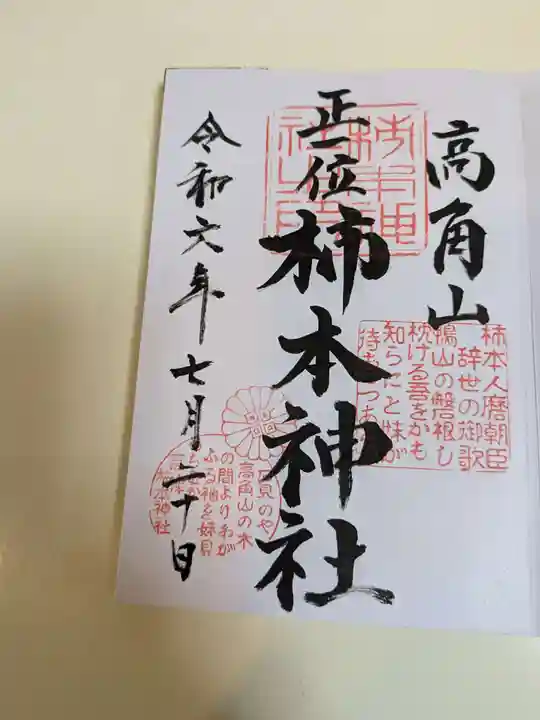 高角山
柿本人麿朝臣
辞世の御歌
鴨山の磐根し
枕ける吾をかも
知らにと妹が
待ちつつあ
正一位
柿本神社
柿本神社之印
石見のや
高角山の木
の間よりわが
ふる袖を妹見
柿本神社
令和六年七月二十日